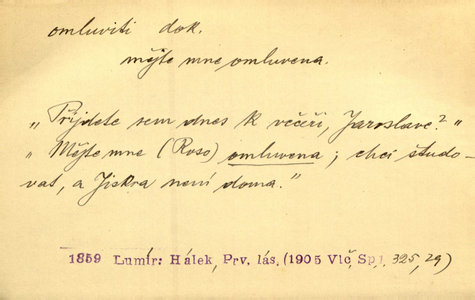 omluviti dok.
mějte mne omluvena.
„Přijdete sem dnes k večeři, Jaroslave?"
„Mějte mne (Roso) omluvena; chci študo-
vat, a Jiskra není doma."
1859 Lumír: Hálek, Prv. lás. (1905 Vlč, Sp. 325, 29)